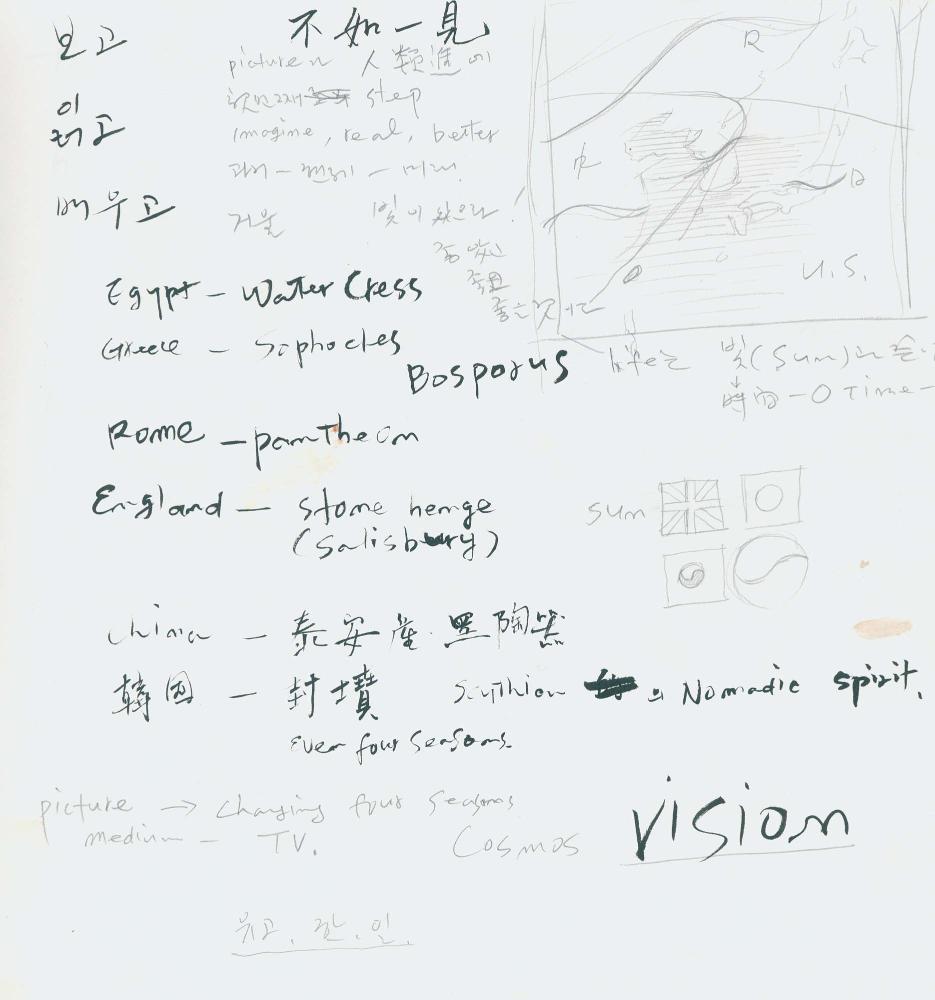 보고 不如一見
picture 人類進에
읽고 step
imagine, real, better
과거 - 현재 - 미래.
배우고 거울 빛이 있으라!
Egypt - Water Cress
Greece - Sophocles
Bosporus
U.S.
life는 빛(Sun)과
時間 - 0 Time -
Rome - pantheon
England - stone henge
(Salisbury)
sun
China - 泰安産 黑陶器
韓国 - 封墳 Scythian Nomadic spirit.
even four seasons.
picture → changing four seasons
medium - TV. Cosmos
vision